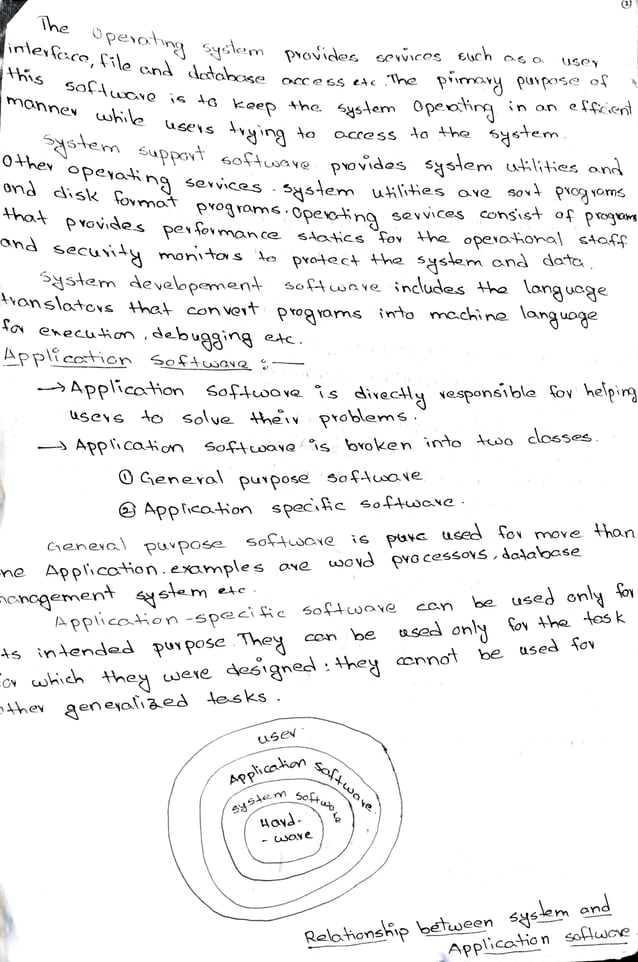 (2)
The Operating system provides services such as a user
interface, file and database access etc. The primary purpose of
this software is to keep the system Operating in an efficient
manner while users trying to access to the system.
System support software provides system utilities and
Other operating services. System utilities are sort programs
and disk format programs. Operating services consist of program
that provides performance statics for the operational staff
and security monitors to protect the system and data.
System developement software includes the language
translators that convert programs into machine language
for execution, debugging etc.
Application Software :-
→ Application Software is directly responsible for helping
users to solve their problems.
→ Application Software is broken into two classes.
① General purpose software
② Application specific software.
General purpose software is pure used for more than
ne Application. examples are word processors, database
management system etc.
Application-specific software can be used only for
ts intended purpose. They can be used only for the task
for which they were designed: they cannot be used for
other generalized tasks.
user
Application Software
System Software
Hard-
- ware
Relationship between system and
Application software